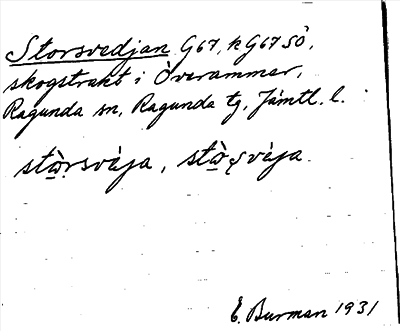 Storsvedjan G67, kG67SÖ,
skogstrakt i Överammer,
Ragunda sn, Ragunda tg, Jämtl. l.
E. Burman 1931